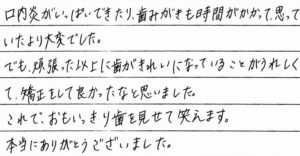 口内炎がいっぱいできたり、歯みがきも時間がかかって、思って
いたより大変でした。
でも、頑張った以上に歯がきれいになっていることがうれしく
て、矯正をして良かったなと思いました。
これで、おもいっきり歯を見せて笑えます。
本当にありがとうございました。